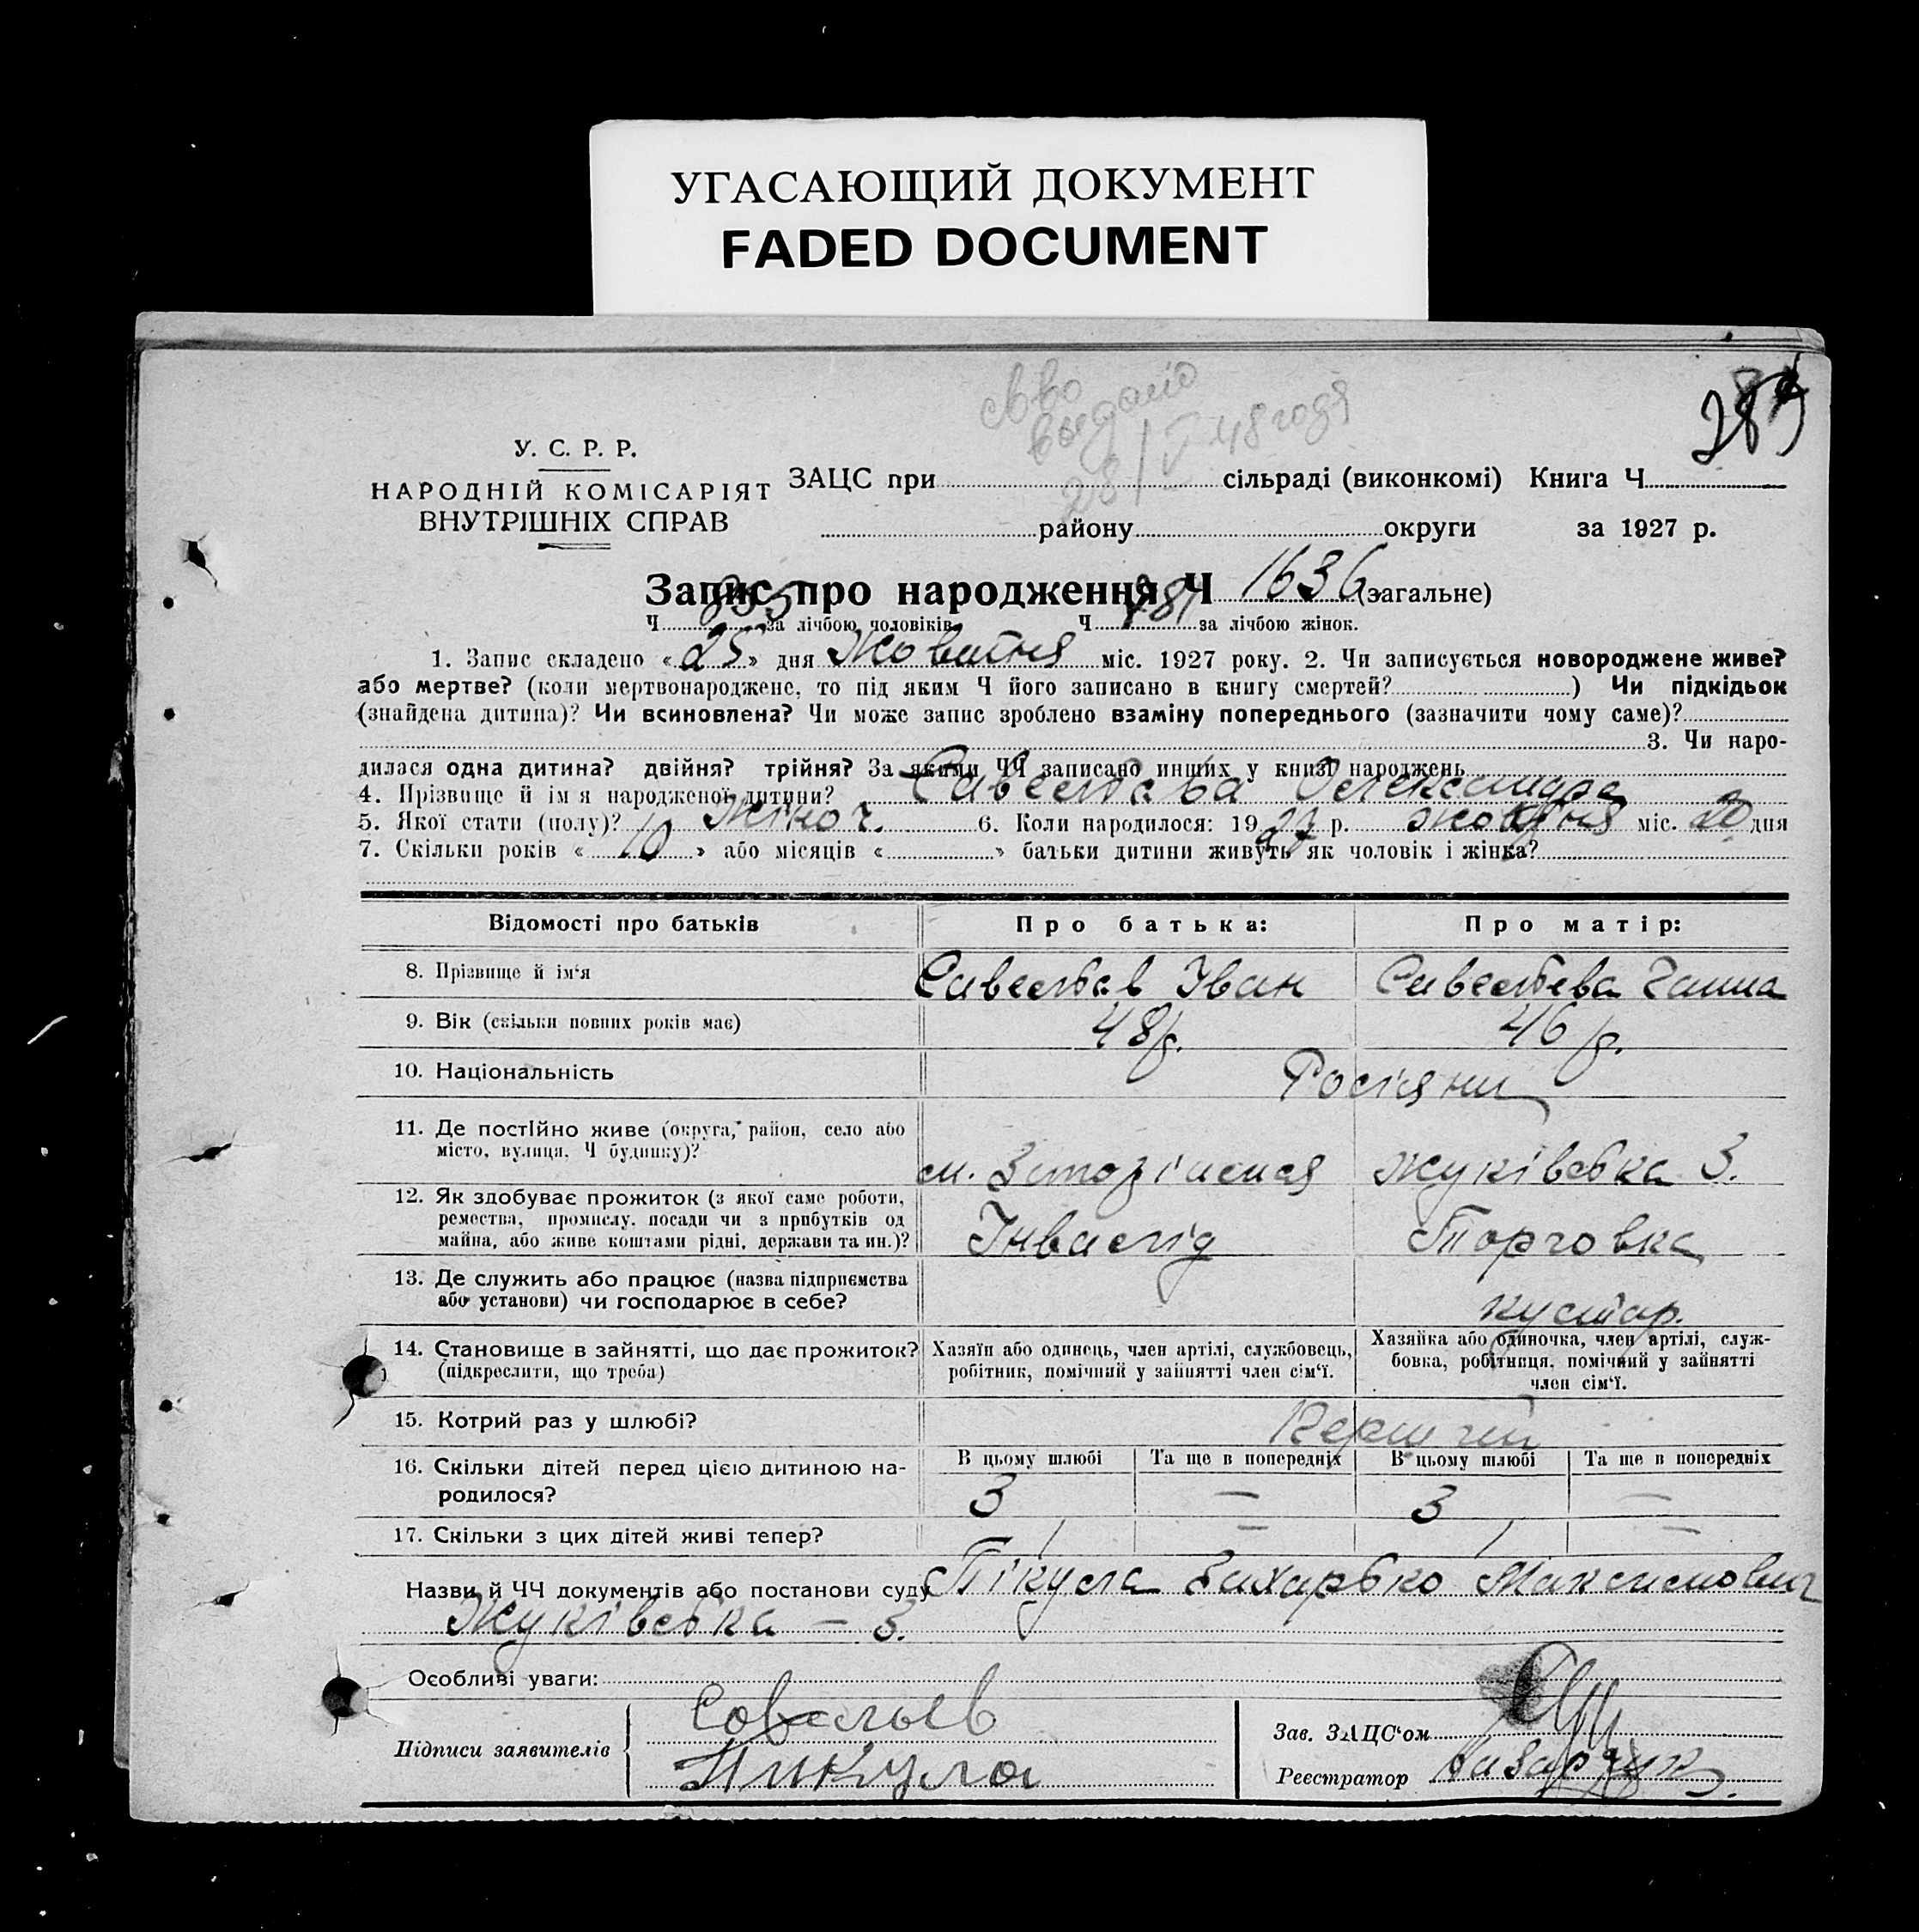 УГАСАЮЩИЙ ДОКУМЕНТ
FADED DOCUMENT
28/V 48 года
У. С. Р. Р.
НАРОДНІЙ КОМІСАРІЯТ
ВНУТРІШНІХ СПРАВ
ЗАЦС при сільраді (виконкомі) Книга Ч
району округи за 1927 р.
Запис про народження Ч 1636 (загальне)
Ч 855 за лічбою чоловіків Ч 781 за лічбою жінок.
1. Запис складено « 25 » дня Жовтня міс. 1927 року. 2. Чи записується новороджене живе?
або мертве? (коли мертвонароджене, то під яким Ч його записано в книгу смертей? ) Чи підкідьок
(знайдена дитина)? Чи всиновлена? Чи може запис зроблено взаміну попереднього (зазначити чому саме)?
3. Чи наро-
дилася одна дитина? двійня? трійня? За якими ЧЧ записано инших у книзі народжень
4. Прізвище й ім'я народженої дитини? Олександра
5. Якої стати (полу)? Жіноч. 6. Коли народилося: 1927 р. жовтня міс. 20 дня
7. Скільки років « 10 » або місяців « » батьки дитини живуть як чоловік і жінка?
Відомості про батьків Про батька: Про матір:
8. Прізвище й ім'я Іван Ганна
9. Вік (скільки повних років має) 48 р. 46 р.
10. Національність Росіяни
11. Де постійно живе (округа, район, село або
місто, вулиця, Ч будинку)? Жуківська 3.
12. Як здобуває прожиток (з якої саме роботи,
ремества, промислу, посади чи з прибутків од
майна, або живе коштами рідні, держави та ин.)? Інвалід Торговка
13. Де служить або працює (назва підприємства
або установи) чи господарює в себе? кустар.
14. Становище в зайнятті, що дає прожиток?
(підкреслити, що треба)
Хазяїн або одинець, член артілі, службовець,
робітник, помічний у зайнятті член сім'ї.
Хазяйка або одиночка, член артілі, служ-
бовка, робітниця, помічний у зайнятті
член сім'ї.
15. Котрий раз у шлюбі? Перший
16. Скільки дітей перед цією дитиною на-
родилося?
В цьому шлюбі Та ще в попередніх В цьому шлюбі Та ще в попередніх
3 — 3 —
17. Скільки з цих дітей живі тепер? 1 — 1 —
Назви й ЧЧ документів або постанови суду Пікула Захарько Максимович
Жуківська — 3.
Особливі уваги:
Підписи заявителів
Савельев
Пикула
Зав. ЗАЦС'ом
Реєстратор Назарчук